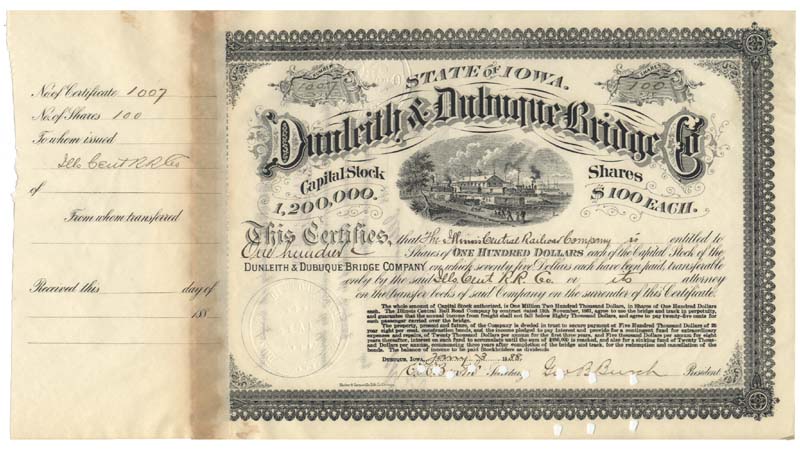 No. of Certificate 1007
No. of Shares 100
To whom issued
Ills Cent R.R. Co
of
From whom transferred
Received this day of
188
STATE OF IOWA.
NUMBER
1007
SHARES
100
Dunleith & Dubuque Bridge Co
Capital Stock
1,200,000.
Shares
$100 EACH.
This Certifies, that The Illinois Central Railroad Company is entitled to
One hundred Shares of ONE HUNDRED DOLLARS each of the Capital Stock of the
DUNLEITH & DUBUQUE BRIDGE COMPANY on which seventy five Dollars each have been paid, transferable
only by the said Ills Cent R.R. Co. or its attorney
on the transfer books of said Company on the surrender of this Certificate.
The whole amount of Capital Stock authorized, is One Million Two Hundred Thousand Dollars, in Shares of One Hundred Dollars
each. The Illinois Central Rail Road Company by contract dated 19th November, 1867, agree to use the bridge and track in perpetuity,
and guarantee that the annual income from freight shall not fall below Eighty Thousand Dollars, and agree to pay twenty-five cents for
each passenger carried over the bridge.
The property, present and future, of the Company is divided in trust to secure payment of Five Hundred Thousand Dollars of 25
year eight per cent. construction bonds, and the income pledged to pay interest and provide for a contingent fund for extraordinary
expenses and repairs, of Twenty Thousand Dollars per annum for the first three years, and Five Thousand Dollars per annum for eight
years thereafter, interest on such fund to accumulate until the sum of $250,000 is reached, and also for a sinking fund of Twenty Thousand
Dollars per annum, commencing three years after completion of the bridge and track, for the redemption and cancellation of the
bonds. The balance of income to be paid Stockholders as dividends.
DUBUQUE, IOWA, 1888.
Secretary Geo B Burch President